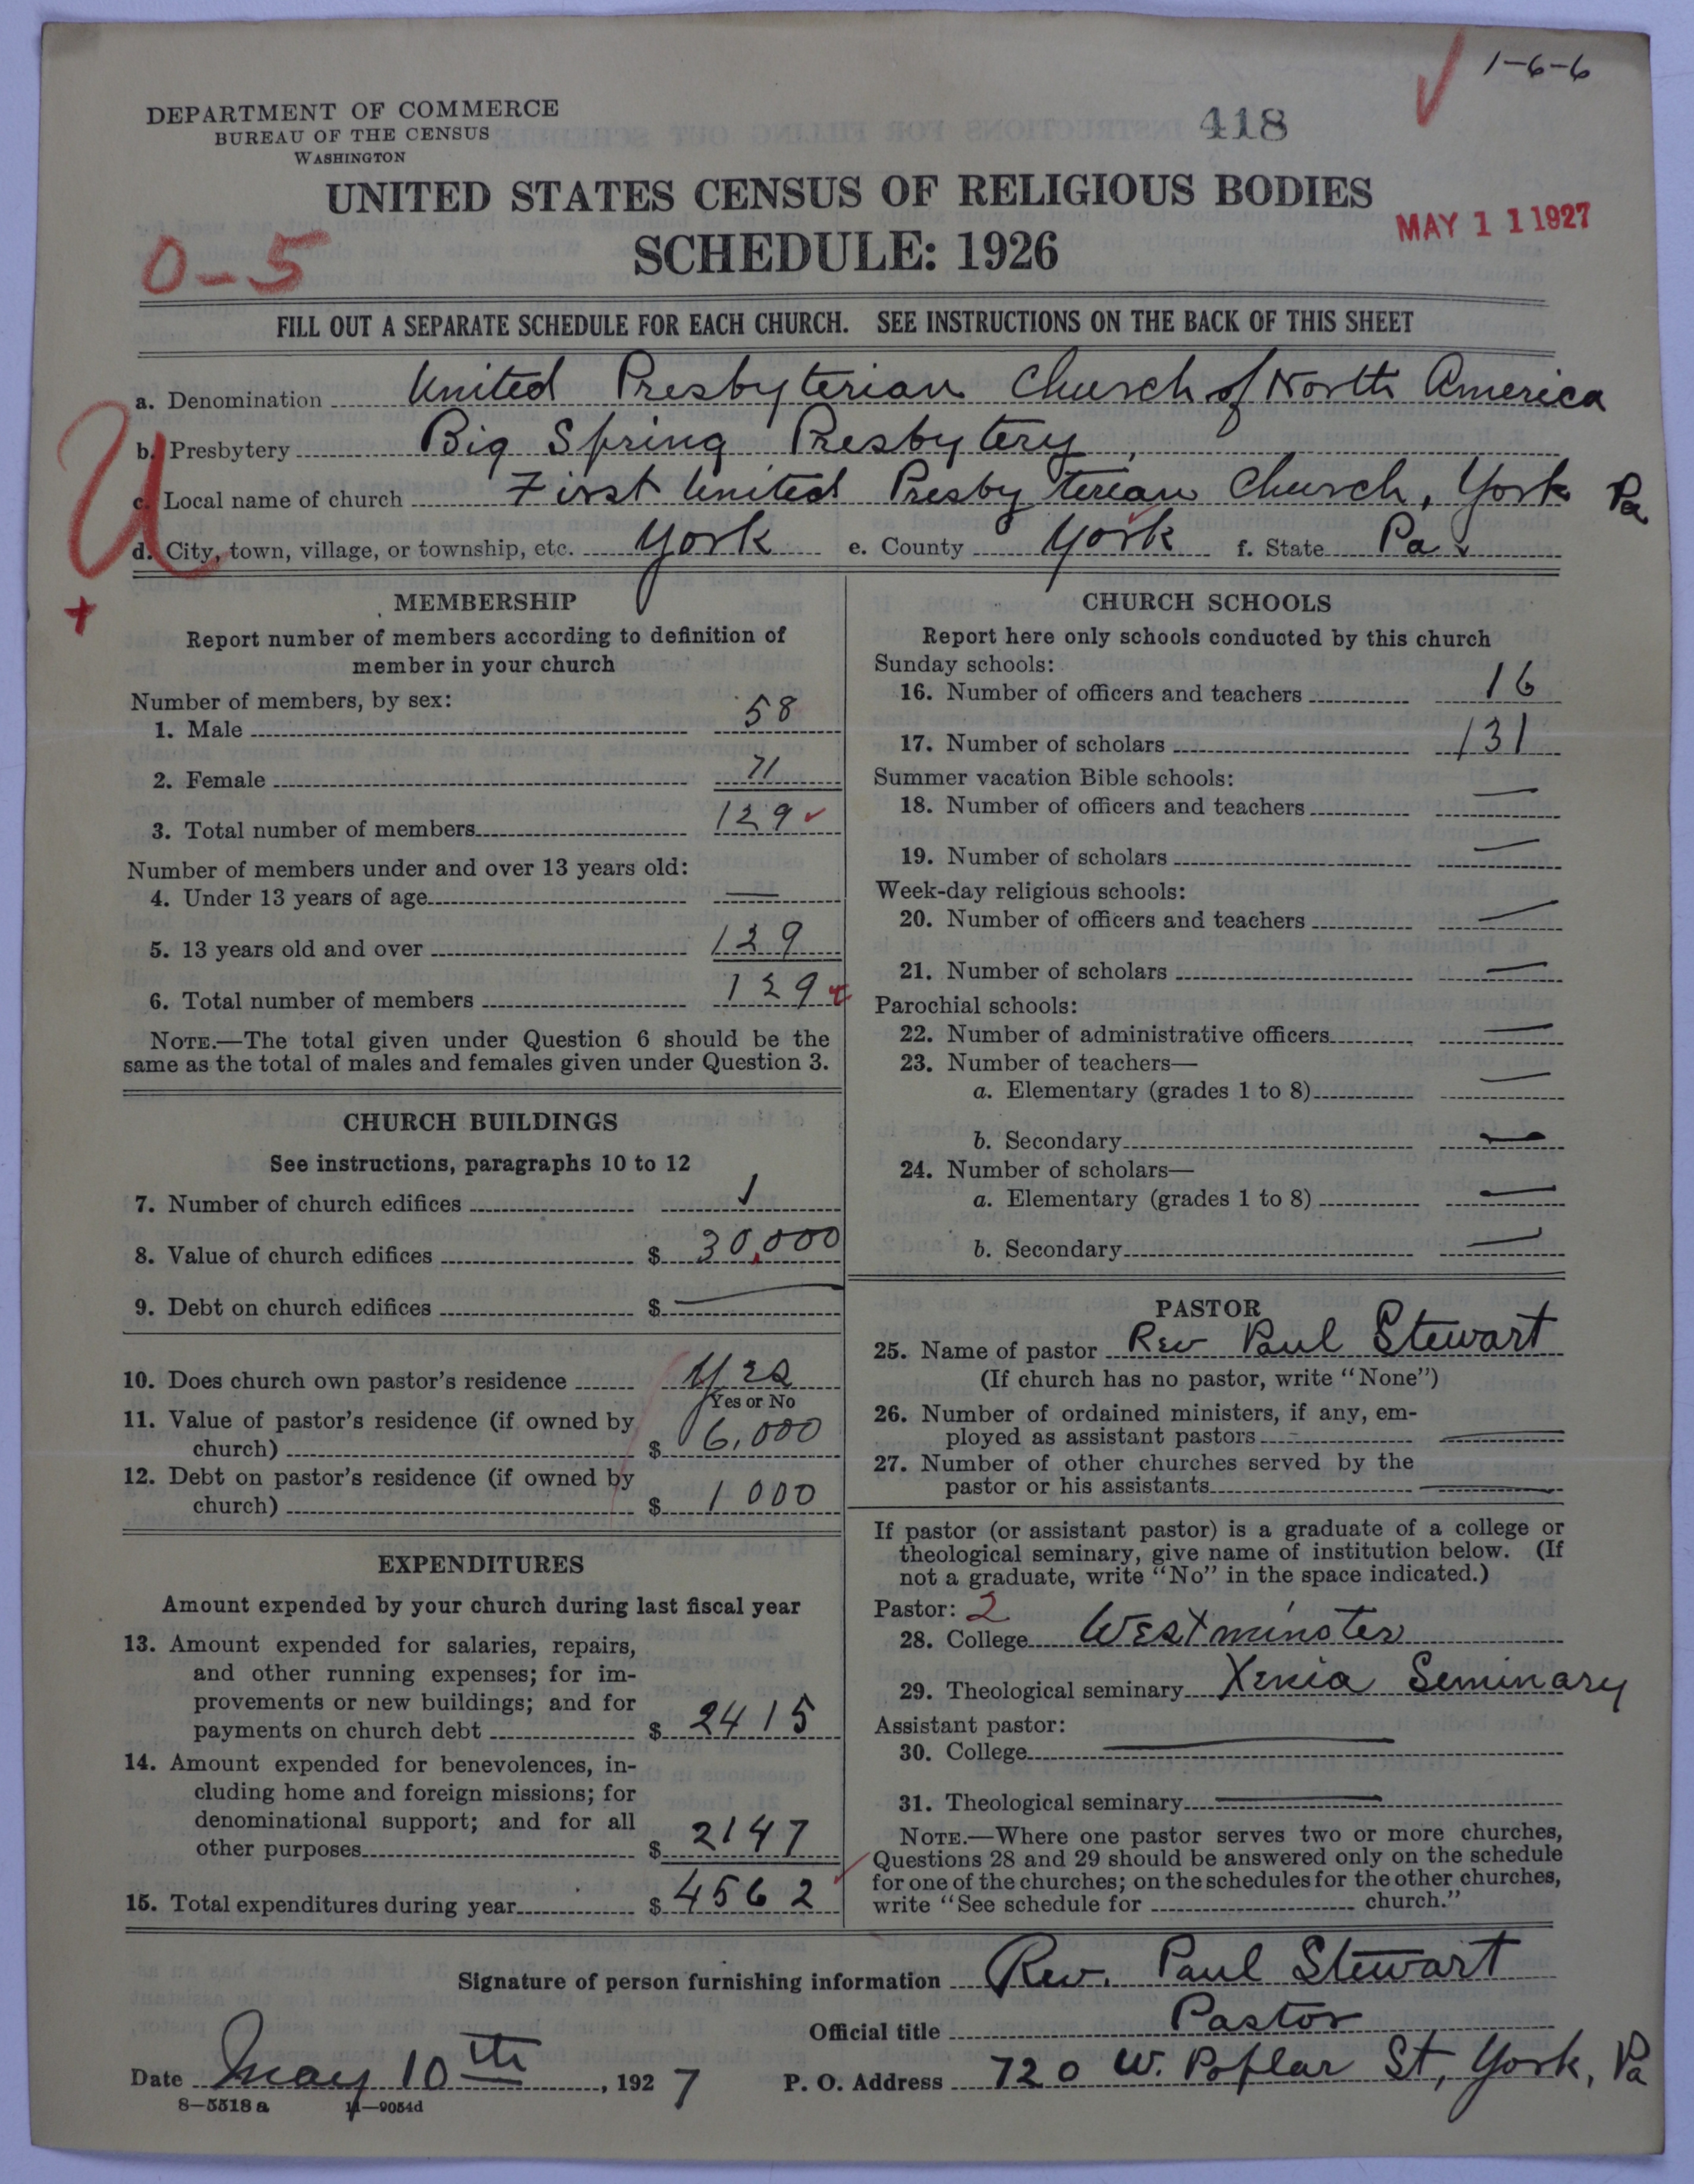 1-6-6
DEPARTMENT OF COMMERCE
BUREAU OF THE CENSUS
WASHINGTON
418
UNITED STATES CENSUS OF RELIGIOUS BODIES
SCHEDULE: 1926
MAY 11 1927
0-5
FILL OUT A SEPARATE SCHEDULE FOR EACH CHURCH. SEE INSTRUCTIONS ON THE BACK OF THIS SHEET
a. Denomination United Presbyterian Church of North America
b. Presbytery Big Spring Presbytery
c. Local name of church First United Presbyterian Church, York Pa
d. City, town, village, or township, etc. York e. County York f. State Pa
U
+
MEMBERSHIP
Report number of members according to definition of
member in your church
Number of members, by sex:
1. Male 58
2. Female 71
3. Total number of members 129
Number of members under and over 13 years old:
4. Under 13 years of age —
5. 13 years old and over 129
6. Total number of members 129
NOTE.—The total given under Question 6 should be the
same as the total of males and females given under Question 3.
CHURCH BUILDINGS
See instructions, paragraphs 10 to 12
7. Number of church edifices 1
8. Value of church edifices $ 30,000
9. Debt on church edifices $ —
10. Does church own pastor's residence Yes
Yes or No
11. Value of pastor's residence (if owned by
church) $ 6,000
12. Debt on pastor's residence (if owned by
church) $ 1000
EXPENDITURES
Amount expended by your church during last fiscal year
13. Amount expended for salaries, repairs,
and other running expenses; for im-
provements or new buildings; and for
payments on church debt $ 2415
14. Amount expended for benevolences, in-
cluding home and foreign missions; for
denominational support; and for all
other purposes $ 2147
15. Total expenditures during year $ 4562
CHURCH SCHOOLS
Report here only schools conducted by this church
Sunday schools:
16. Number of officers and teachers 16
17. Number of scholars 131
Summer vacation Bible schools:
18. Number of officers and teachers —
19. Number of scholars —
Week-day religious schools:
20. Number of officers and teachers —
21. Number of scholars —
Parochial schools:
22. Number of administrative officers —
23. Number of teachers—
a. Elementary (grades 1 to 8) —
b. Secondary —
24. Number of scholars—
a. Elementary (grades 1 to 8) —
b. Secondary —
PASTOR
25. Name of pastor Rev Paul Stewart
(If church has no pastor, write "None")
26. Number of ordained ministers, if any, em-
ployed as assistant pastors —
27. Number of other churches served by the
pastor or his assistants —
If pastor (or assistant pastor) is a graduate of a college or
theological seminary, give name of institution below. (If
not a graduate, write "No" in the space indicated.)
Pastor: 2
28. College Westminster
29. Theological seminary Xenia Seminary
Assistant pastor:
30. College —
31. Theological seminary —
NOTE.—Where one pastor serves two or more churches,
Questions 28 and 29 should be answered only on the schedule
for one of the churches; on the schedules for the other churches,
write "See schedule for church."
Signature of person furnishing information Rev. Paul Stewart
Official title Pastor
Date May 10th, 1927 P. O. Address 720 W. Poplar St, York, Pa
8-5518 a 11-9054d